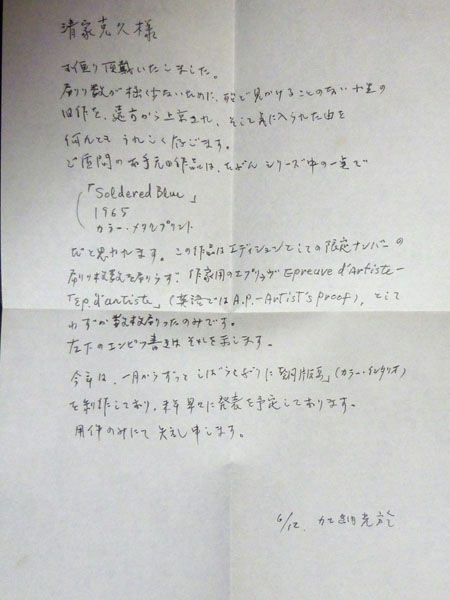 清家克久様
お便り頂戴いたしました。
刷り数が極く少ないために、殆ど見かけることのない小生の
旧作を、遠方から上京され、そして気に入られた由を
何んとも うれしく存じます。
ご質問のお手元の作品は、たぶん シリーズ中の一点で
「Soldered Blue」
1965
カラー・メタルプリント
だと思われます。この作品はエディションとしての限定ナンバーの
刷り枚数を刷らず、作家用のエプルーヴ Epreuve d'Artiste―
「Ep. d'artiste」(英語では A.P.―Artist's proof)、として
わずか数枚刷ったのみです。
左下のエンピツ書きは それを示します。
今年は、一月からずっと しばらくぶりに「銅版画」(カラー・インタリオ)
を制作しており、来年早々に発表を予定しております。
用件のみにて 失礼申します。
6/12. 加納光於